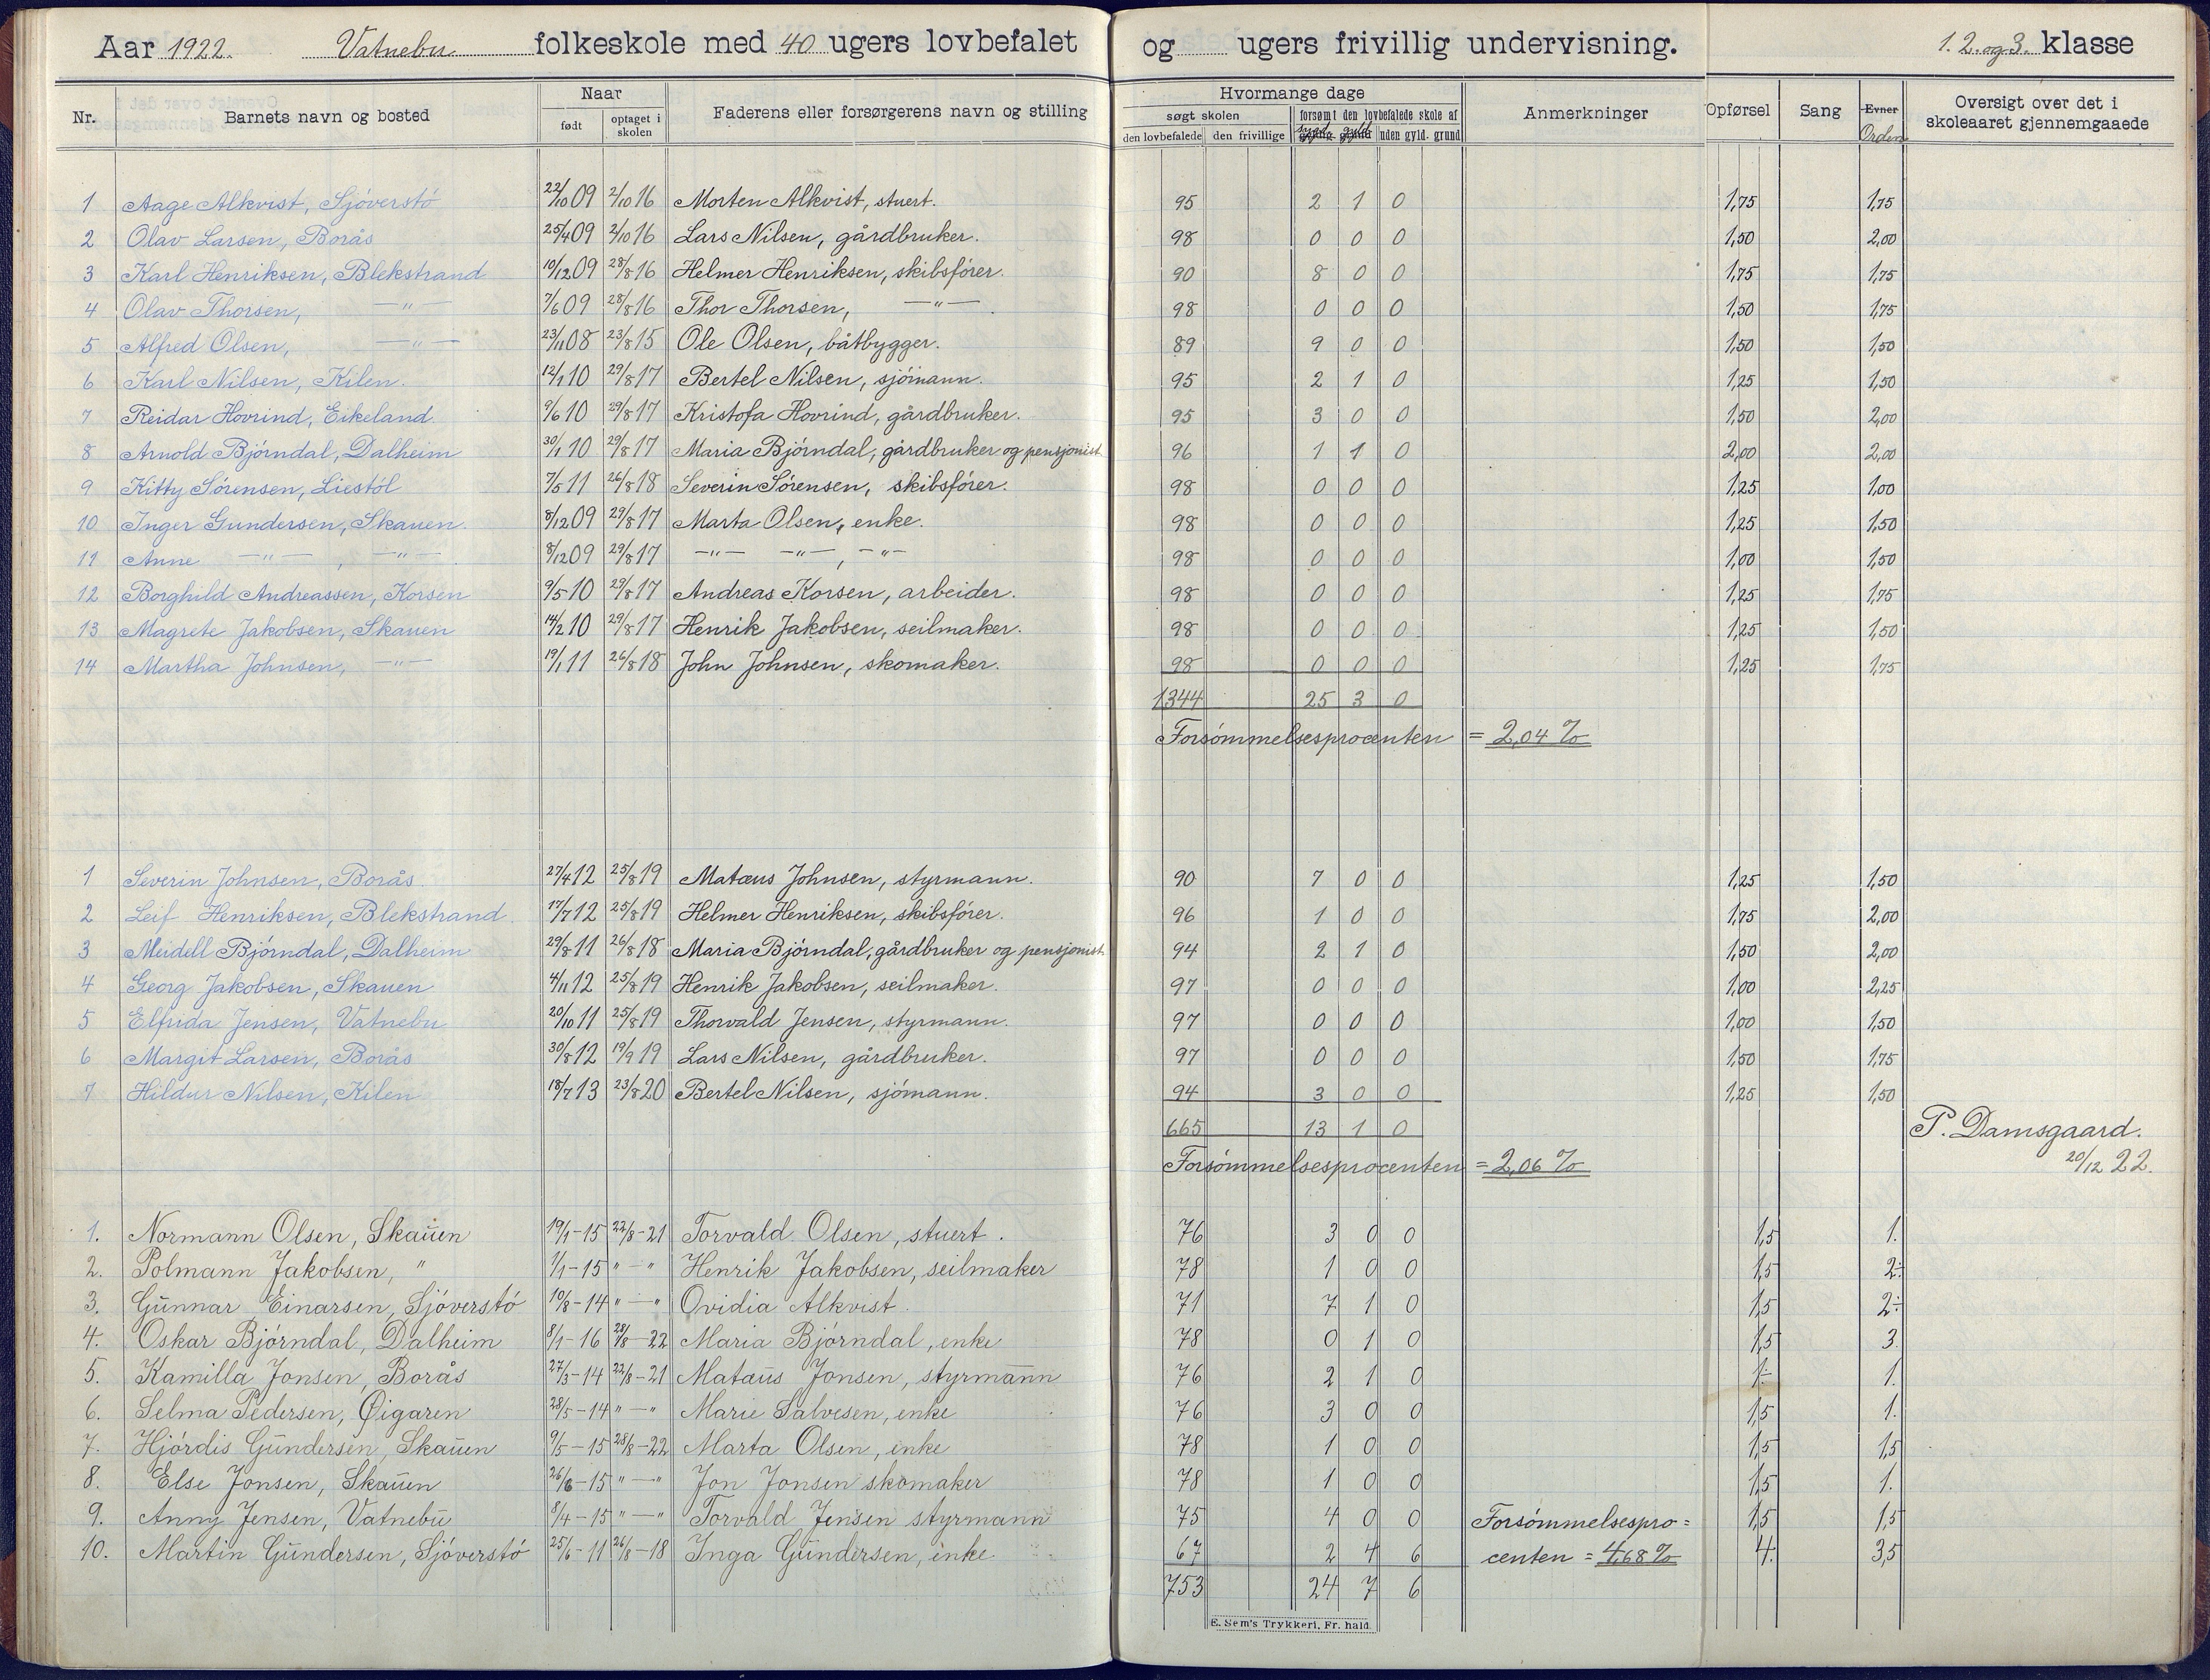 Aar 1922. Vatnebu folkeskole med 40 ugers lovbefalet og ugers frivillig undervisning. 1. 2. og 3. klasse
Nr. Barnets navn og bosted Naar født optaget i skolen Faderens eller forsørgerens navn og stilling Hvormange dage søgt skolen den lovbefalede den frivillige forsømt den lovbefalede skole af uden gyld. grund Anmerkninger Opførsel Sang Evner Orden Oversigt over det i skoleaaret gjennemgaaede
1 Aage Alkvist, Sjöverstö 22/10 09 2/10 16 Morten Alkvist, stuert. 95 2 1 0 1,75 1,75
2 Olav Larsen, Borås 25/4 09 2/10 16 Lars Nilsen, gårdbruker. 98 0 0 0 1,50 2,00
3 Karl Henriksen, Blekstrand 10/12 09 28/8 16 Helmer Henriksen, skibsförer. 90 8 0 0 1,75 1,75
4 Olav Thorsen, —"— 7/6 09 28/8 16 Thor Thorsen, —"— 98 0 0 0 1,50 1,75
5 Alfred Olsen, —"— 23/11 08 23/8 15 Ole Olsen, båtbygger. 89 9 0 0 1,50 1,50
6 Karl Nilsen, Kilen. 12/1 10 29/8 17 Bertel Nilsen, sjömann. 95 2 1 0 1,25 1,50
7 Reidar Hovrind, Eikeland. 9/6 10 29/8 17 Kristofa Hovrind, gårdbruker. 95 3 0 0 1,50 2,00
8 Arnold Björndal, Dalheim 30/1 10 29/8 17 Maria Björndal, gårdbruker og pensjonist. 96 1 1 0 2,00 2,00
9 Kitty Sörensen, Liestöl 7/5 11 26/8 18 Severin Sörensen, skibsförer. 98 0 0 0 1,25 1,00
10 Inger Gundersen, Skauen. 8/12 09 29/8 17 Marta Olsen, enke. 98 0 0 0 1,25 1,50
11 Anne —"—, —"— 8/12 09 29/8 17 —"— —"—, —"— 98 0 0 0 1,00 1,50
12 Borghild Andreassen, Korsen 9/5 10 29/8 17 Andreas Korsen, arbeider. 98 0 0 0 1,25 1,75
13 Magrete Jakobsen, Skauen 14/2 10 29/8 17 Henrik Jakobsen, seilmaker. 98 0 0 0 1,25 1,50
14 Martha Johnsen, —"— 19/1 11 26/8 18 John Johnsen, skomaker. 98 0 0 0 1,25 1,75
1344 25 3 0
Forsömmelsesprocenten = 2,04 %
1 Severin Johnsen, Borås. 27/4 12 25/8 19 Matæus Johnsen, styrmann. 90 7 0 0 1,25 1,50
2 Leif Henriksen, Blekstrand. 17/7 12 25/8 19 Helmer Henriksen, skibsförer. 96 1 0 0 1,75 2,00
3 Meidell Björndal, Dalheim 29/8 11 26/8 18 Maria Björndal, gårdbruker og pensjonist. 94 2 1 0 1,50 2,00
4 Georg Jakobsen, Skauen 4/11 12 25/8 19 Henrik Jakobsen, seilmaker. 97 0 0 0 1,00 2,25
5 Elfrida Jensen, Vatnebu 20/10 11 25/8 19 Thorvald Jensen, styrmann. 97 0 0 0 1,00 1,50
6 Margit Larsen, Borås 30/8 12 19/9 19 Lars Nilsen, gårdbruker. 97 0 0 0 1,50 1,75
7 Hildur Nilsen, Kilen 18/7 13 23/8 20 Bertel Nilsen, sjömann. 94 3 0 0 1,25 1,50
665 13 1 0 P. Damsgaard.
Forsömmelsesprocenten = 2,06 % 20/12 22.
1. Normann Olsen, Skauen 19/1-15 22/8-21 Torvald Olsen, stuert. 76 3 0 0 1,5 1.
2. Polmann Jakobsen, " 1/1-15 "—" Henrik Jakobsen, seilmaker 78 1 0 0 1,5 2÷
3. Gunnar Einarsen, Sjöverstö 10/8-14 "—" Ovidia Alkvist. 71 7 1 0 1,5 2÷
4. Oskar Björndal, Dalheim 8/1-16 28/8-22 Maria Björndal, enke 78 0 1 0 1,5 3.
5. Kamilla Jonsen, Borås 27/3-14 22/8-21 Matæus Jonsen, styrmann 76 2 1 0 1÷ 1.
6. Selma Pedersen, Øigaren 28/5-14 "—" Marie Salvesen, enke 76 3 0 0 1,5 1.
7. Hjördis Gundersen, Skauen 9/5-15 28/8-22 Marta Olsen, enke 78 1 0 0 1,5 1,5
8. Else Jonsen, Skauen 26/6-15 "—" Jon Jonsen skomaker 78 1 0 0 1,5 1.
9. Anny Jensen, Vatnebu 8/4-15 "—" Torvald Jensen styrmann 75 4 0 0 Forsömmelsespro= 1,5 1,5
10. Martin Gundersen, Sjöverstö 25/6-11 26/8-18 Inga Gundersen, enke. 67 2 4 6 centen = 4,68 % 4. 3,5
753 24 7 6
E. Sem's Trykkeri, Fr. hald.